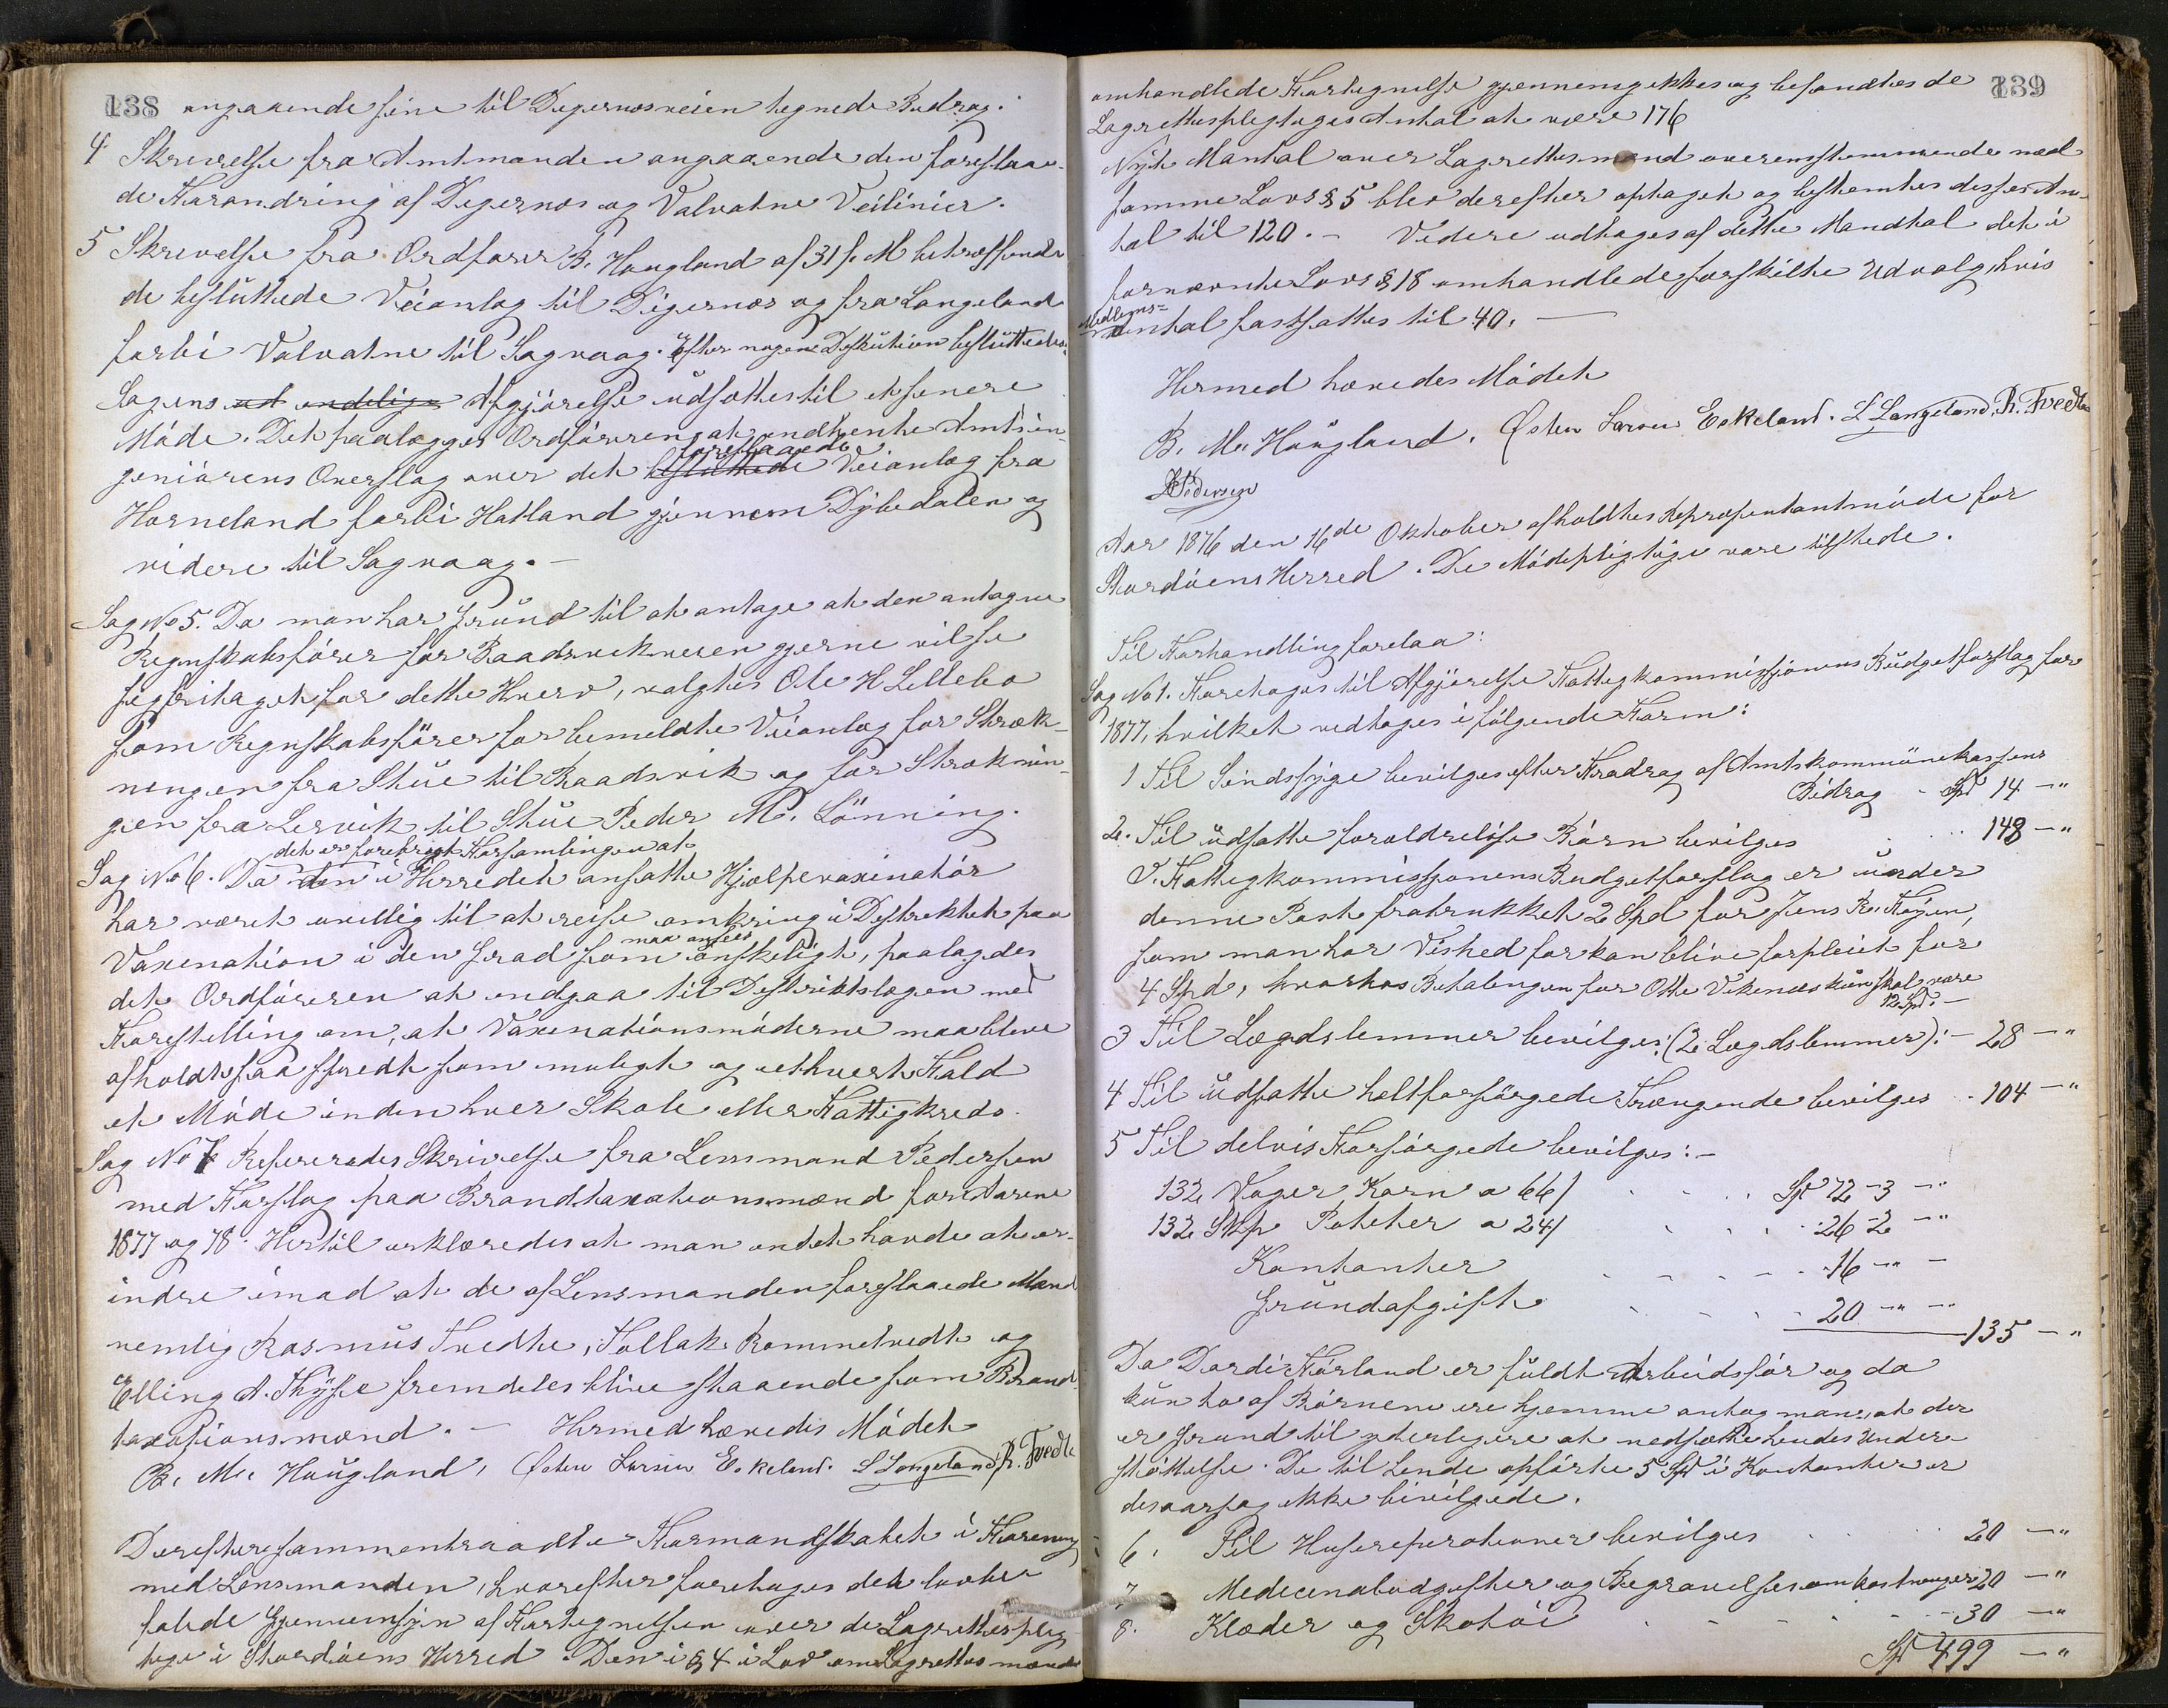 138 angaaende sine til Digernæsveien tegnede Bidrag.
4 Skrivelse fra Amtmanden angaaende den foreslaae-
de Forandring af Digernæs og Valvatne Veilinier.
5 Skrivelse fra Ordfører B. Haugland af 31 f. M betreffende
de besluttede Veianlæg til Digernæs og fra Langeland
forbi Valvatne til Sagvaag. Efter nogen Diskution besluttedes
Sagens endelige Afgjørelse udsattes til et senere
Møde. Det paalægges Ordføreren at indhente Amtsin-
foreslaaede
geniørens Overslag over det besluttede Veianlæg fra
Horneland forbi Hatland gjennem Dybedalen og
videre til Sagvaag.-
Sag No 5. Da man har Grund til at antage at den antagne
Regnskabsfører for Baadsvikveien gjerne vil se
sig fritaget for dette Hverv, valgtes Ole H Lillebø
som Regnskabsfører for bemeldte Veianlæg for Stræk-
ningen fra Stue til Baadsvik og for Stræknin-
gen fra Lervik til Stue Peder M. Lönning.
det er forebragt Forsamlingen at
Sag No 6. Da den i Herredet ansatte Hjælpevaxinatör
har været uvillig til at reise omkring i Destriktet paa
maa ansees
Vaxenation i den Grad som ønskeligt, paalagdes
det Ordføreren at indgaa til Destriktslægen med
Forestilling om, at Vaxenationsmøderne maa blive
afholdt saa spredt som muligt og ethvert Fald
et Møde inden hver Skole eller Fattigkreds.
Sag No 7 Refereredes Skrivelse fra Lensmand Pedersen
med Forslag paa Brandtaxationsmænd for Aarene
1877 og 78. Hertil erklæredes at man intet havde at er-
indre imod at de af Lensmanden foreslaaede Mænd
nemlig Rasmus Tvedte, Tollak Rommetvedt og
Elling A. Thyse fremdeles blive staaende som Brand-
taxationsmænd. - Hermed hævedes Mødet
B. M. Haugland, Østen Larsen Eskeland. L Langeland, R. Tvedte
Derefter sammentraadte Formandskabet i Forening
med Lensmanden, hvorefter foretoges det lovbe-
falede Gjennemsyn af Fortegnelsen over de Lagrettesplig-
tige i Stordøens Herred. Den i § 4 i Lov om Lagrettesmænd
139
omhandlede Fortegnelse gjennemgikkes og befandtes de
Lagrettespligtiges Antal at være 176
Nyt Mantal over Lagrettesmænd overensstemmende med
samme Lovs § 5 blev derefter optaget og bestemtes disses An-
tal til 120. - Videre udtoges af dette Mandtal det i
fornævnte Lovs § 18 omhandlede forskilte Udvalg, hvis
Medlems-
antal fastsattes til 40. -
Hermed hævedes Mødet
B. M. Haugland. Østen Larsen Eskeland. L Langeland. R. Tvedte
Pedersen
Aar 1876 den 16de Oktober afholdtes Repræsentantmøde for
Stordøens Herred. De Mødepligtige vare tilstede.
Til Forhandling forelaa:
Sag No 1. Foretoges til Afgjørelse Fattigkommissjonens Budgetforslag for
1877, hvilket vedtoges i følgende Form:
1 Til Sindssyge bevilges efter Fradrag af Amtskommunekassens
Bidrag - Spd 14 - "
2. Til udsatte forældreløse Børn bevilges . . . 148 - "
I Fattigkommissjonens Budgetforslag er under
denne Post fratrukket 2 Spd for Jens R. Høyen,
som man har Vished for kan blive forpleiet for
4 Spd, hvorhos Betalingen for Otte Vikenes kun skal være
12 Spd. -
3 Til Lægdslemmer bevilges: (2 Lægdslemmer): - 28 - "
4 Til udsatte heltforsørgede Trængende bevilges . 104 - "
5 Til delvis Forsørgede bevilges: -
132 Voger Korn a 66/ . . . . Spd 72 - 3 - "
132 Skp Poteter a 24/ . . . . 26 - 2 - "
Kontanter . . . . . 16 - " -
Grundafgift . . . . 20 - " -
135 - "
Da Dordi Førland er fuldt Arbeidsfør og da
kun to af Børnene ere hjemme antog man, at der
er Grund til yderligere at nedsætte hendes Under-
støttelse. De til hende opførte 5 Spd i Kontanter er
desaarsag ikke bevilgede.
6. Til Husereperationer bevilges . . . 20 - "
7. Medecenaludgifter og Begravelsesomkostninger 20 - "
8. Klæder og Skotøi . . . . . 30 - "
Spd 499 - "